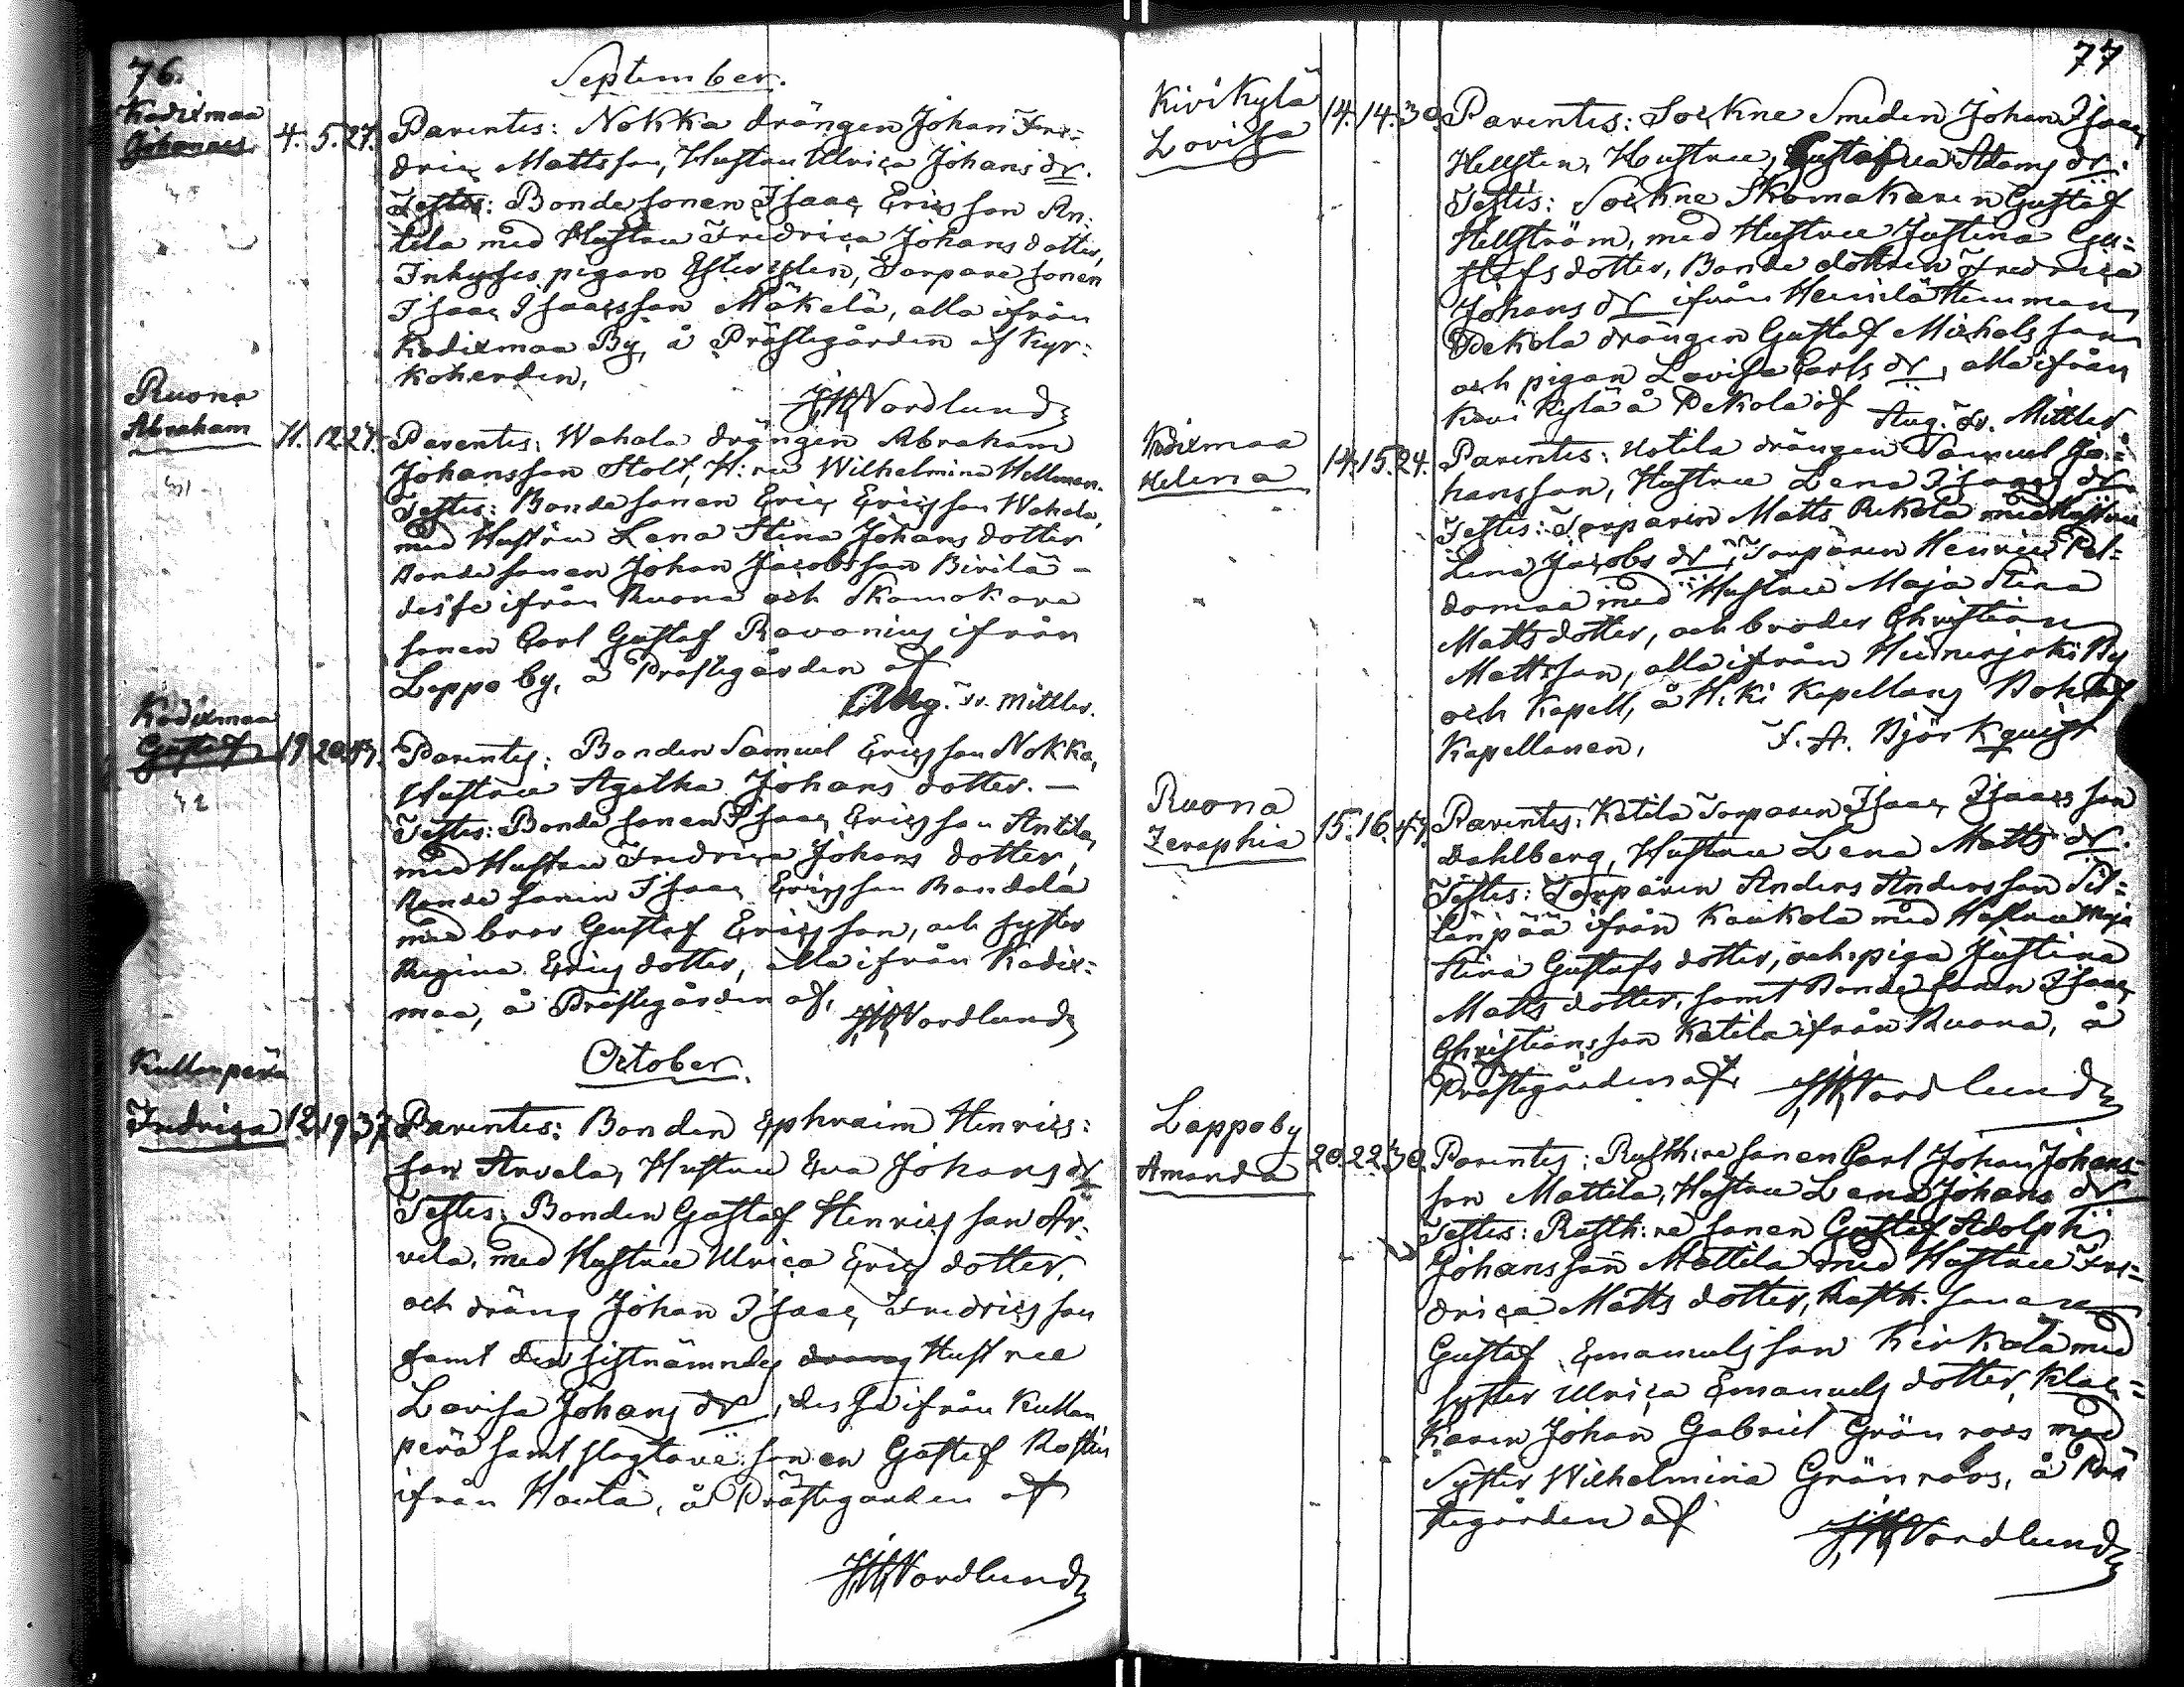 76.
September.
Kodixmaa
Johannes 4. 5. 27. Parentes: Nokka drängen Johan Fre=
dric Mattsson, Hustru Ulrica Johans dr.
Testes: Bonde sonen Isaac Ericsson An=
tila med Hustru Fredrica Johans dotter,
Inhyses pigan, Torpare sonen
Isaac Isaacsson Mäkelä, alla ifrån
Kodixmaa By, å Prästegården af Kyr=
koherden,
JHNordlund
Ruona
Abraham 11. 12. 27. Parentes: Wahala drängen Abraham
Johansson Stolt, H:ru Wilhelmina Hellman.
Testes: Bonde sonen Eric Ericsson Wahala,
med Hustru Lena Stina Johans dotter
Bonde sonen Johan Jacobsson Birilä –
desse ifrån Ruona och Skomakare
sonen Carl Gustaf Ravonius ifrån
Lappo by, å Prästegården af
Aug. Fr. Mittler.
Kodixmaa
Gustaf 19. 20. 43. Parentes: Bonden Samuel Ericsson Nokka,
Hustru Agatha Johans dotter. –
Testes: Bonde sonen Isaac Ericsson Antila,
med Hustru Fredrica Johans dotter,
Bonde sonen Isaac Ericsson Bandala
med bror Gustaf Ericsson, och syster
Regina Erics dotter, alla ifrån Kodix=
maa, å Prästegården af,
JHNordlund
October.
Kullanperä
Fredrica 12. 19. 37. Parentes: Bonden Ephraim Henrics=
son Arvela, Hustru Eva Johans dr
Testes: Bonden Gustaf Henricsson Ar=
vela, med Hustru Ulrica Erics dotter,
och dräng Johan Isaac Fredricsson
samt den sistnämndes drang Hustru
Lovisa Johans dr, desse ifrån Kullan
perä samt slagtare sonen Gustaf Rostin
ifrån Hauta, å Prästegården af
JHNordlund
77
Kivikylä
Lovisa 14. 14. 30. Parentes: Sockne Smeden Johan Isaac
Hellsten, Hustru, Gustafva Adams dr.
Testes: Sockne Skomakaren Gustaf
Hellström, med Hustru Justina Gu=
stafs dotter, Bonde dottren Fredrica
Johans dr ifrån Heinilä Hemman,
Pekola drängen Gustaf Michelsson
och pigan Lovisa Carls dr, alla ifrån
Kivi Kylä å Pekola af Aug. Fr. Mittler
Kodixmaa
Helena 14. 15. 24. Parentes: Uotila drängen Samuel Jo=
hansson, Hustru Lena Isaacs dr.
Testes: Torparen Matts Pekola med Hustru
Lena Jacobs dr, Torparen Henric Pel=
domaa med Hustru Maja Stina
Matts dotter, och broder Christian
Mattsson, alla ifrån Hinnerjoki By
och Kapell, å H:ki Kapellans Bohl af
Kapellanen, F. A. Björkquist
Ruona
Zeraphia 15. 16. 47. Parentes: Ketila Torparen Isaac Isaacsson
Dahlberg, Hustru Lena Matts dr.
Testes: Torparen Anders Andersson Sil=
länpää ifrån Kaukola med Hustru Maja
Stina Gustafs dotter, och piga Justina
Matts dotter, samt Bonde sonen Isaac
Christiansson Ketila ifrån Ruona, å
Prästegården af,
JHNordlund
Lappoby
Amanda 20. 22. 30. Parentes: Rusth:re sonen Carl Johan Johans=
son Mattila, Hustru Lena Johans dr
Testes: Rusth:re sonen Gustaf Adolph
Johansson Mattila med Hustru Fre=
drica Matts dotter, Rusth. sonen
Gustaf Emanuelsson Kirkola med
syster Ulrica Emanuels dotter, Kloc=
karen Johan Gabriel Grönroos med
Syster Wilhelmina Grönroos, å Prä
stegården af
JHNordlund